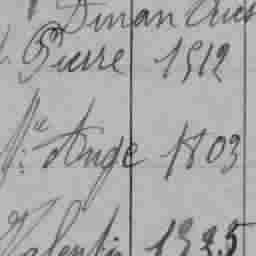 Dinan
Pierre 1912
Ange 1803
Valentin 1925